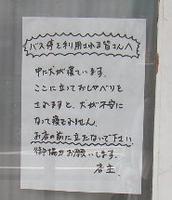 バス停を利用される皆さんへ
中に犬が寝ています。
ここに立っておしゃべりを
されますと、犬が不安に
なって寝られません。
お店の前に立たないで下さい
御協力お願いします。
店主